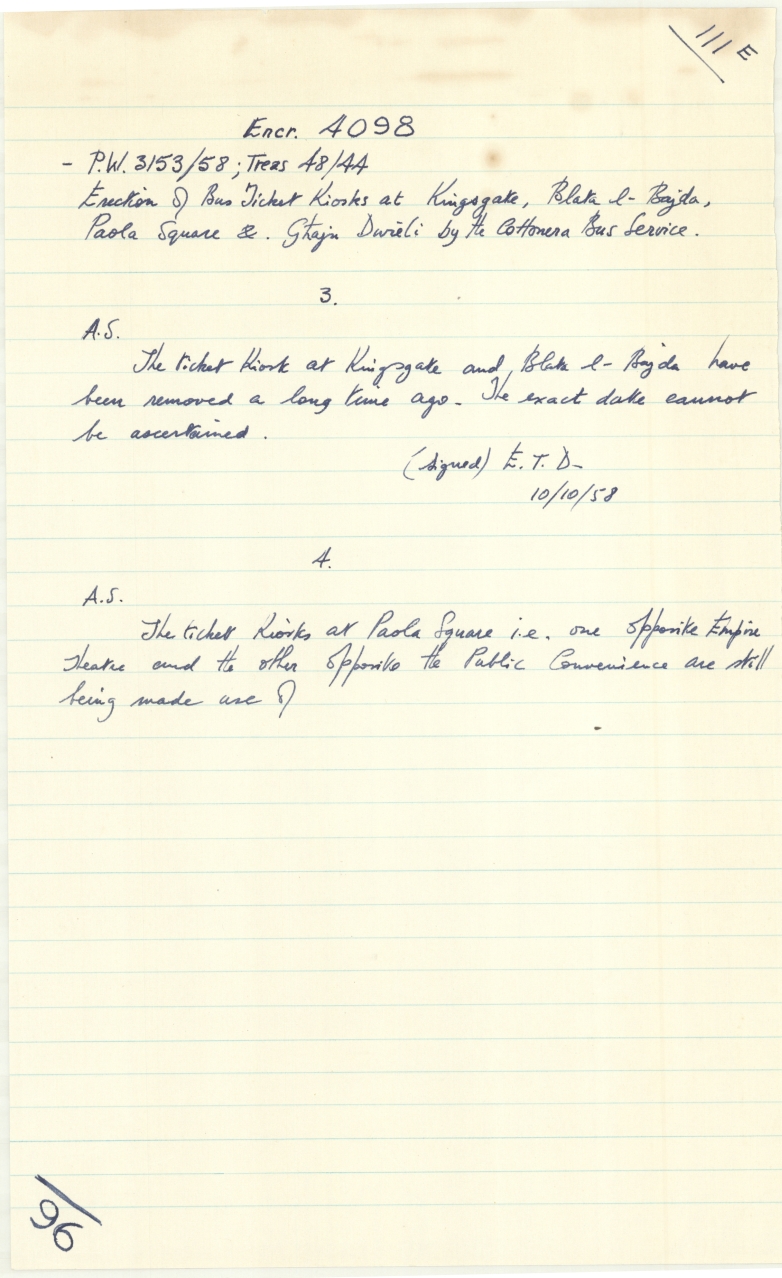 111 E
Encr. 4098
- P.W. 3153/58; Treas 48/44
Erection of Bus Ticket Kiosks at Kingsgate, Blata l-Bajda,
Paola Square &. Għajn Dwieli by the Cottonera Bus Service.
3.
A.S.
The ticket Kiosk at Kingsgate and Blata l-Bajda have
been removed a long time ago. The exact date cannot
be ascertained.
(signed) E. T. D.
10/10/58
4.
A.S.
The ticket Kiosks at Paola Square i.e. one opposite Empire
Theatre and the other opposite the Public Convenience are still
being made use of
96/